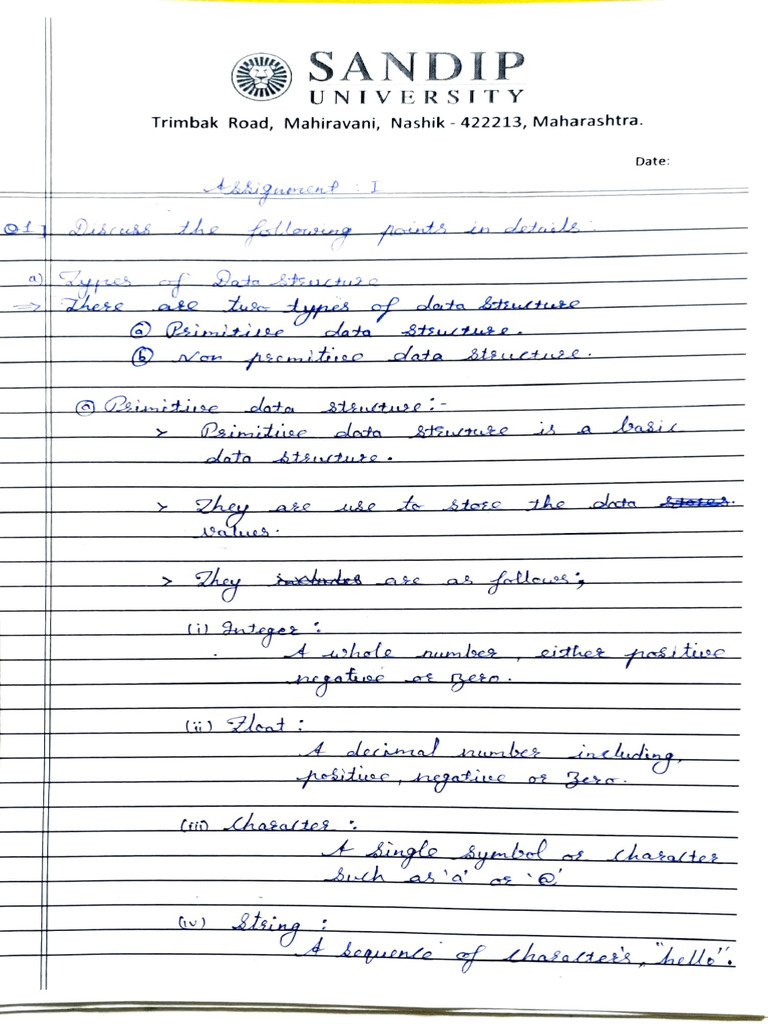 SANDIP
UNIVERSITY
Trimbak Road, Mahiravani, Nashik - 422213, Maharashtra.
Date:
Assignment : I
Q1] Discuss the following points in details.
a) Types of Data Structure
⇒ There are two types of data structure
ⓐ Primitive data structure.
ⓑ Non premitive data structure.
ⓐ Primitive data structure:-
> Primitive data structure is a basic
data structure.
> They are use to store the data stores.
values.
> They includes are as follows;
(i) Integer :
A whole number, either positive
negative or zero.
(ii) Float :
A decimal number including,
positive, negative or zero.
(iii) Character :
A single symbol or character
such as 'a' or '@'
(iv) String :
A sequence of character's, "hello".